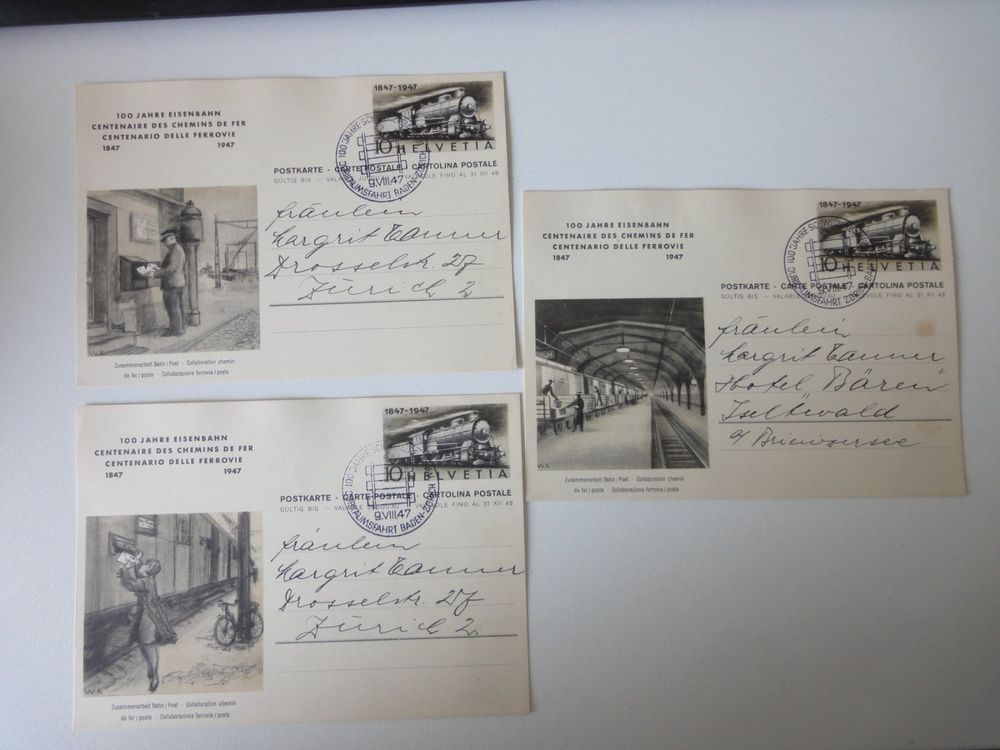 100 JAHRE EISENBAHN
CENTENAIRE DES CHEMINS DE FER
CENTENARIO DELLE FERROVIE
1847 1947
1847-1947
10 HELVETIA
100 JAHRE
9.VIII.47
JUBILÄUMSFAHRT BADEN-ZÜRICH
POSTKARTE - CARTE POSTALE - CARTOLINA POSTALE
GÜLTIG BIS — VALABLE FINO AL 31 XII 48
Fräulein
Margrit Tanner
Drosselstr. 27
Zürich 2
Zusammenarbeit Bahn / Post · Collaboration chemin
de fer / poste · Collaborazione ferrovia / posta
100 JAHRE EISENBAHN
CENTENAIRE DES CHEMINS DE FER
CENTENARIO DELLE FERROVIE
1847 1947
1847-1947
10 HELVETIA
100 JAHRE
9.VIII.47
JUBILÄUMSFAHRT
POSTKARTE - CARTE POSTALE - CARTOLINA POSTALE
GÜLTIG BIS — VALABLE FINO AL 31 XII 48
Fräulein
Margrit Tanner
Hotel "Bären"
Iseltwald
a/ Brienzersee
Zusammenarbeit Bahn / Post · Collaboration chemin
de fer / poste · Collaborazione ferrovia / posta
W.K.
100 JAHRE EISENBAHN
CENTENAIRE DES CHEMINS DE FER
CENTENARIO DELLE FERROVIE
1847 1947
1847-1947
10 HELVETIA
100 JAHRE
9.VIII.47
JUBILÄUMSFAHRT BADEN-ZÜRICH
POSTKARTE - CARTE POSTALE - CARTOLINA POSTALE
GÜLTIG BIS — FINO AL 31 XII 48
Fräulein
Margrit Tanner
Drosselstr. 27
Zürich 2.
W.K.
Zusammenarbeit Bahn / Post · Collaboration chemin
de fer / poste · Collaborazione ferrovia / posta